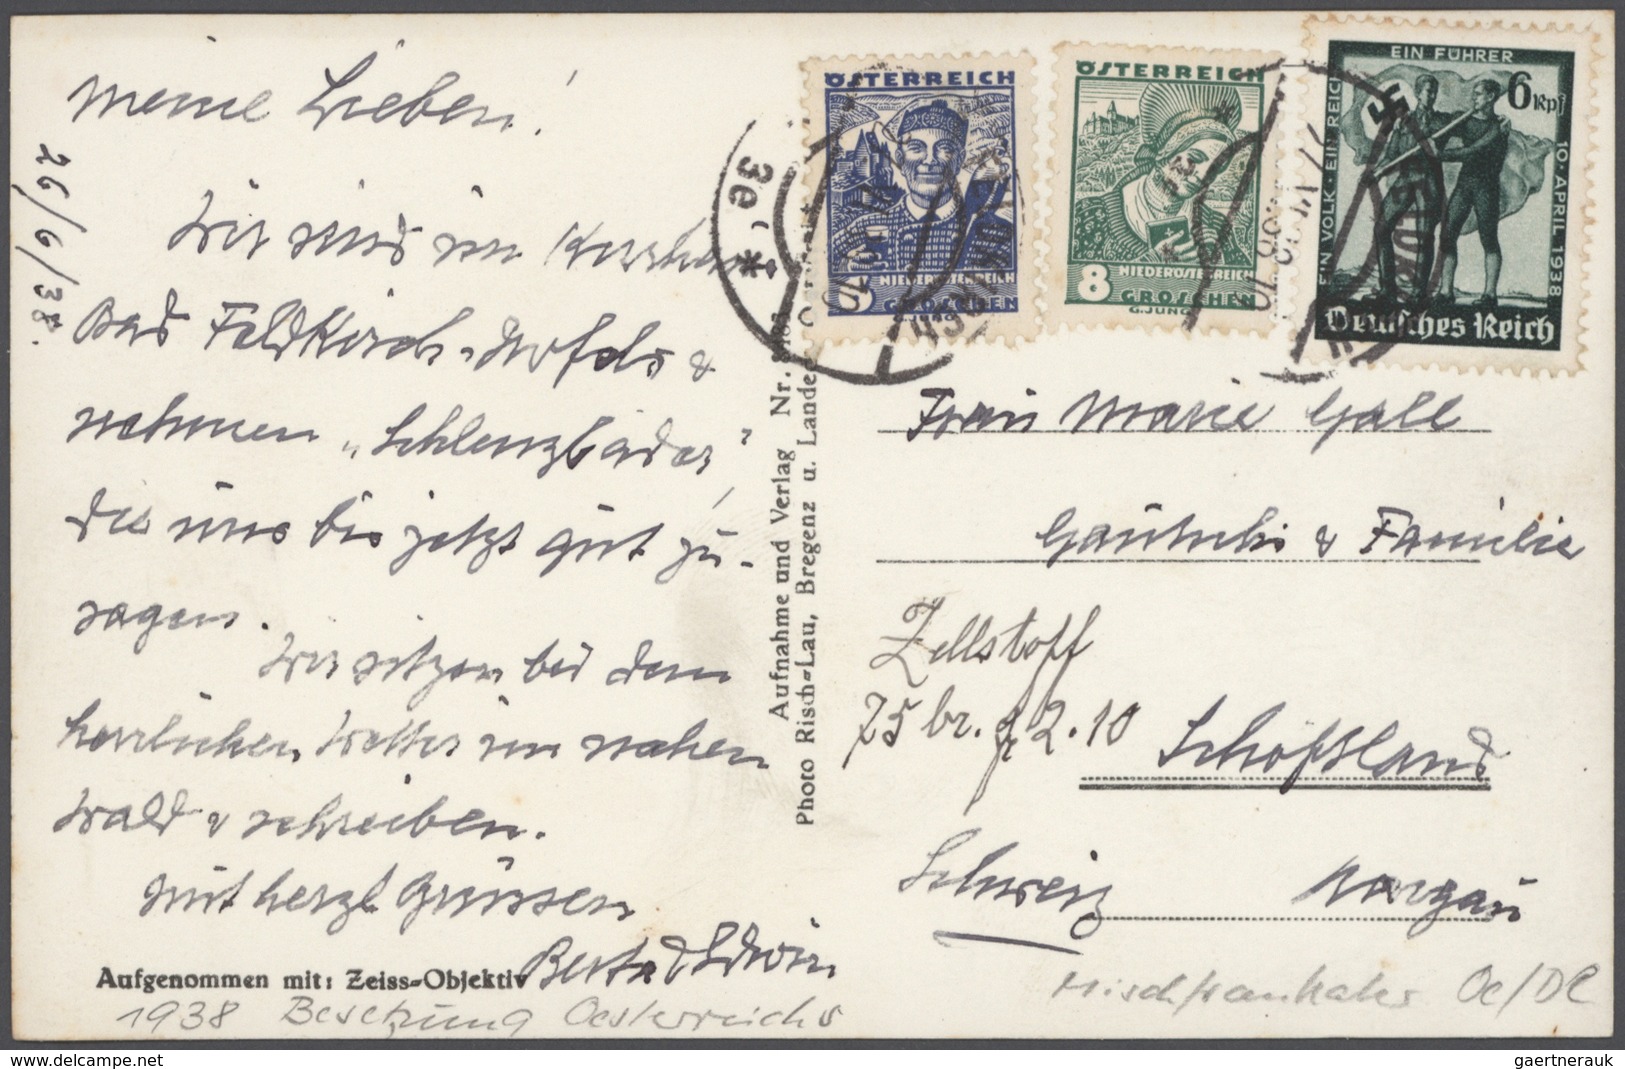 Meine Lieben!
26/6/38.
Wir sind im Kurhaus
Bad Feldkirch-Nofels &
nehmen „Schlenzbäder"
die uns bis jetzt gut zu-
sagen.
Wir sitzen bei dem
herrlichen Wetter im nahen
Wald & schreiben.
Mit herzl Grüssen
Berta & Edwin
Aufgenommen mit: Zeiss-Objektiv
1938 Besetzung Oesterreichs
Aufnahme und Verlag Nr.
Photo Risch-Lau, Bregenz u. Landec
ÖSTERREICH
NIEDERÖSTERREICH
GROSCHEN
ÖSTERREICH
8 NIEDERÖSTERREICH
GROSCHEN
G.JUNG
EIN VOLK · EIN REICH
EIN FÜHRER
10·APRIL 1938
6 Rpf
Deutsches Reich
3e *
Frau Marie Gall
Gautschi & Familie
Zellstoff
75 br. f 2.10
Schöftland
Schweiz Aargau
Mischfrankatur Oe/DR
gaertnerauk
delcampe.net